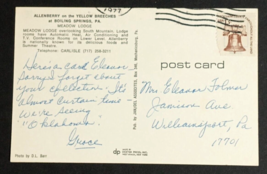 ALLENBERRY on the YELLOW BREECHES
at BOILING SPRINGS, PA.
MEADOW LODGE
MEADOW LODGE overlooking South Mountain. Lodge
rooms have Automatic Heat, Air Conditioning and
T.V. Conference Rooms on Lower Level. Allenberry
is nationally known for its delicious foods and
Summer Theatre.
Telephone CARLISLE (717) 258-3211
1977
post card
Here's a card Eleanor.
Sorry I forgot about
your collection. It's
almost curtain time
We're seeing
"Oklahoma"
Grace
Mrs Eleanor Folmer
Jamison Ave
Williamsport, Pa
17701
Photo by
dp